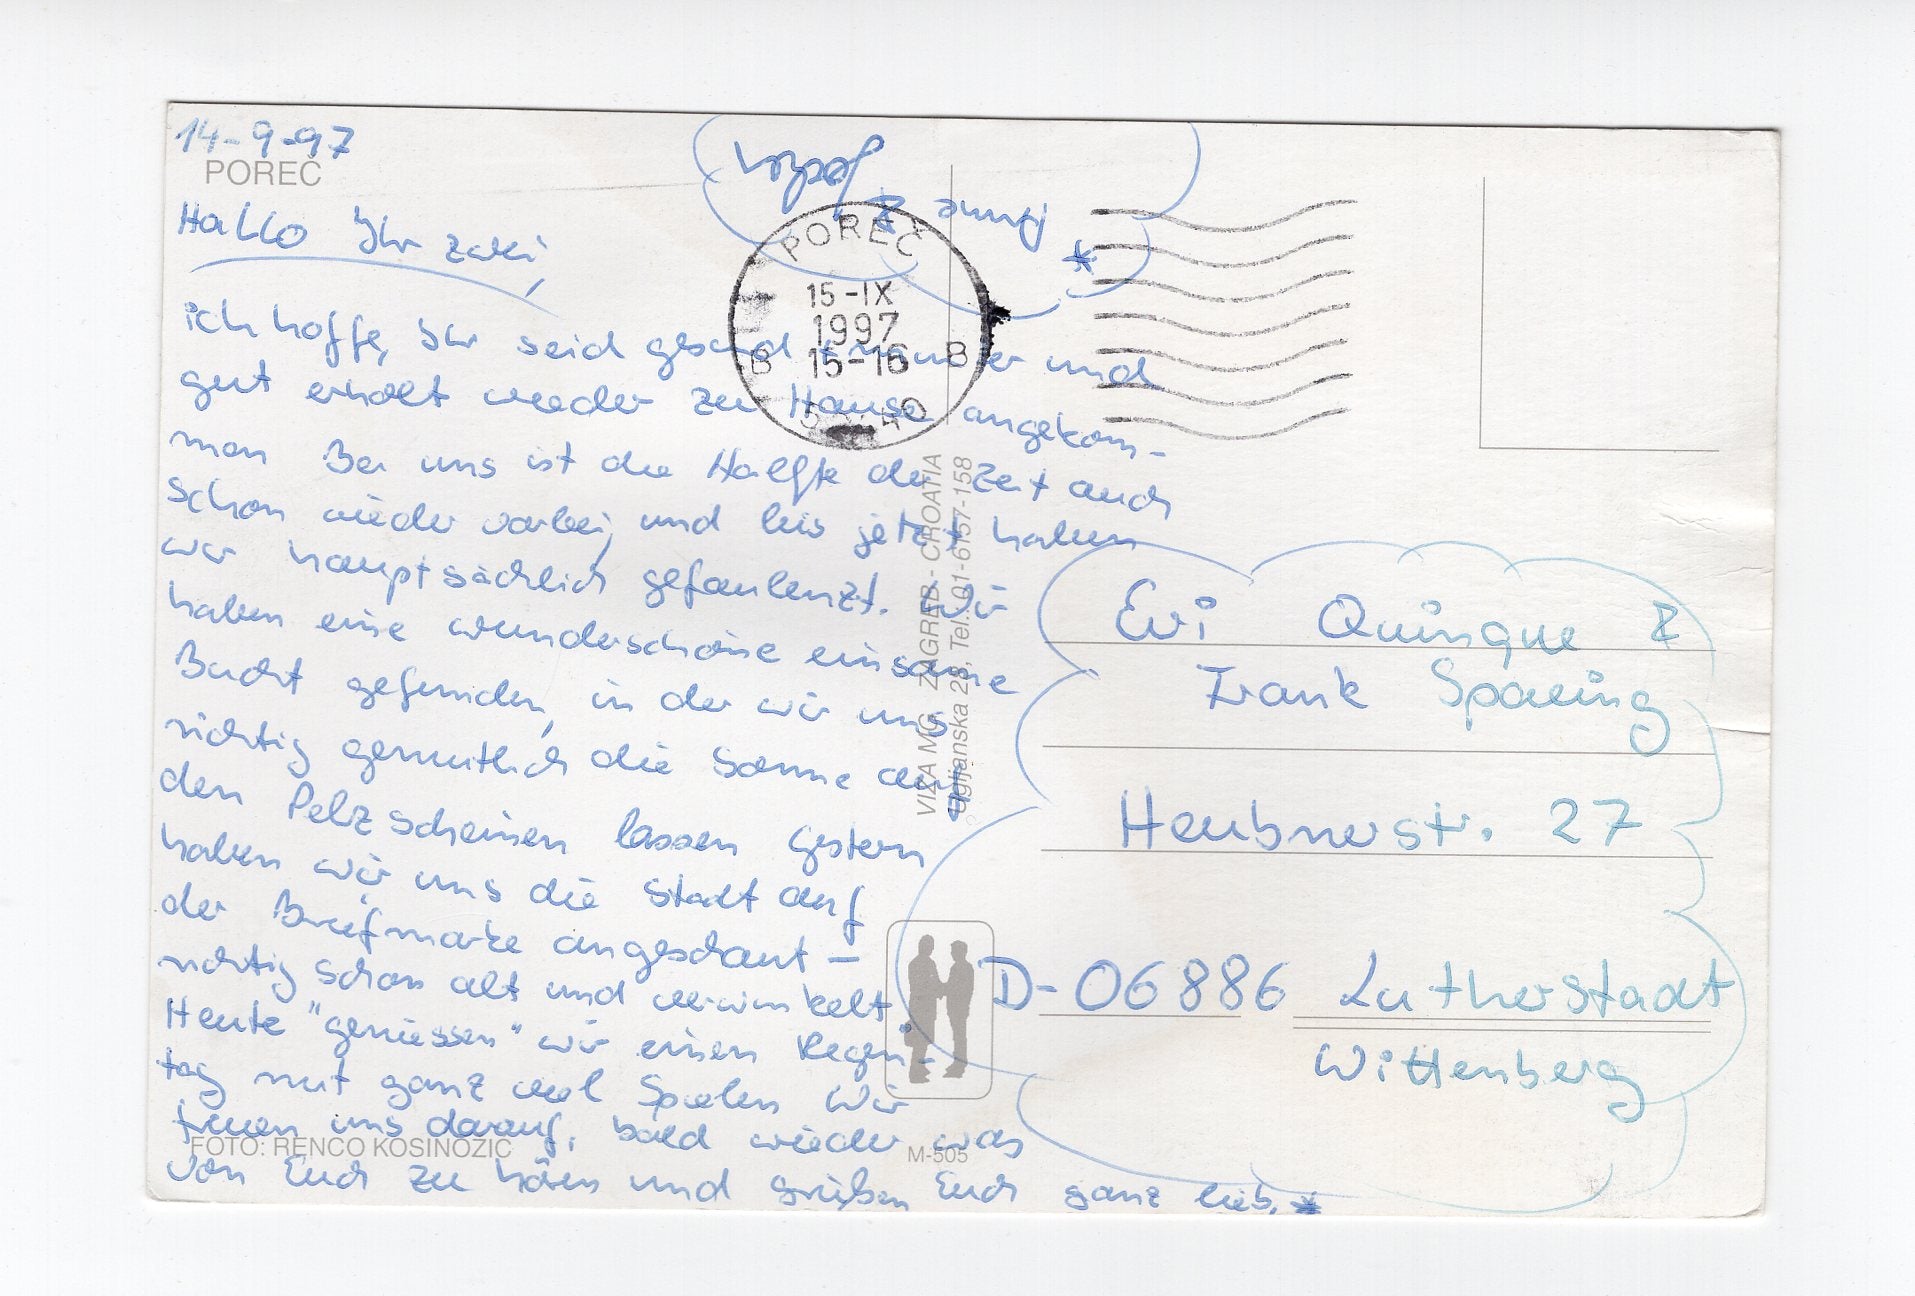 14-9-97
POREČ
Hallo Ihr zwei,
ich hoffe, Ihr seid gesund + munter und
gut erholt wieder zu Hause angekom-
men Bei uns ist die Hälfte der Zeit auch
schon wieder vorbei, und bis jetzt haben
wir hauptsächlich gefaulenzt. Wir
haben eine wunderschöne einsame
Bucht gefunden, in der wir uns
richtig gemütlich die Sonne auf
den Pelz scheinen lassen gestern
haben wir uns die Stadt auf
der Briefmarke angeschaut –
richtig schön alt und verwinkelt.
Heute "geniessen" wir einen Regen-
tag mit ganz viel Spielen Wir
freuen uns darauf, bald wieder was
von Euch zu hören und grüßen Euch ganz lieb. *
* Anne &
POREČ
15-IX
1997
15-16
B B
VIZA MG ZAGREB - CROATIA
Ugljanska 28, Tel. 01-6157-158
Evi Quinque &
Frank Sparing
Heubnerstr. 27
D-06886 Lutherstadt
Wittenberg
FOTO: RENCO KOSINOZIC
M-505